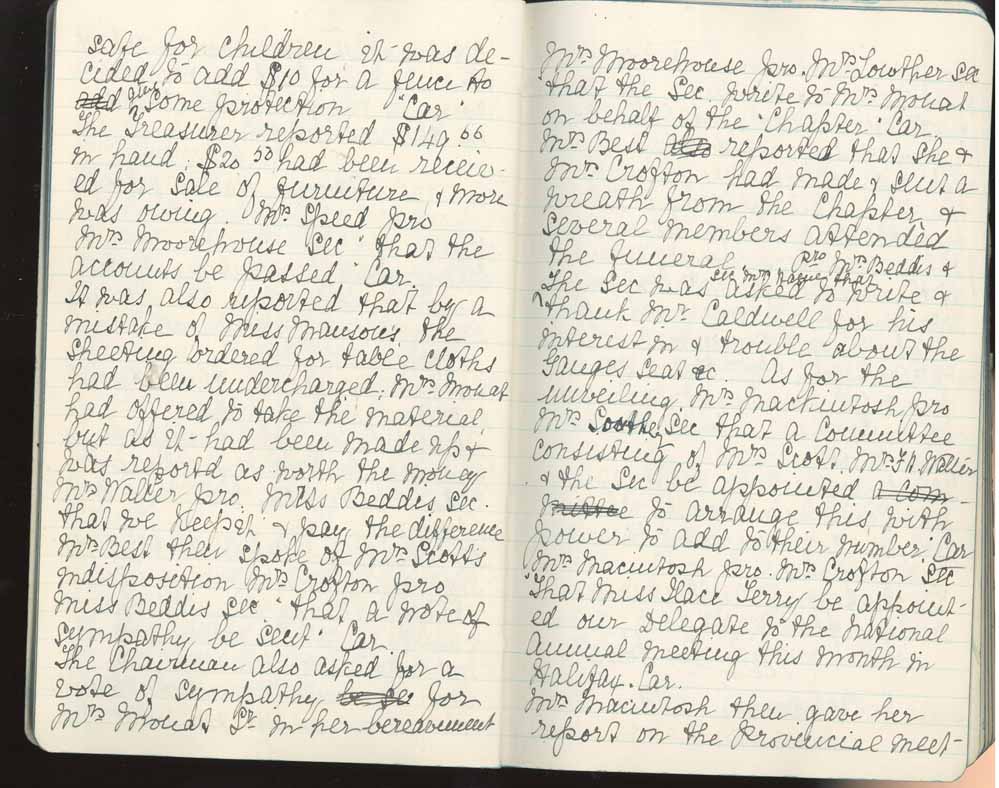 safe for children it was de-
cided to add $10 for a fence to
give some protection "Car"
The Treasurer reported $149.66
in hand; $20.50 had been receiv-
ed for sale of furniture, & more
was owing. Mrs Speed pro
Mrs Moorehouse Sec "that the
accounts be passed" Car.
It was also reported that by a
mistake of Miss Mansons, the
sheeting ordered for table cloths
had been undercharged; Mrs Mouat
had offered to take the material,
but as it had been made up &
was reported as worth the money
Mrs Walter pro. Miss Beddis Sec.
that we keep it & pay the difference
Mrs Best then spoke of Mr Scotts
indisposition Mrs Crofton pro
Miss Beddis Sec "that a note of
sympathy be sent" Car.
The Chairman also asked for a
vote of sympathy for
Mrs Mouat Sr in her bereavement
Mrs Moorehouse pro. Mrs Lowther Sec
that the Sec. write to Mrs Mouat
on behalf of the "Chapter" Car.
Mrs Best also reported that she &
Mrs Crofton had made & sent a
wreath from the Chapter, &
several members attended
the funeral pro Mrs Beddis &
sec Mrs that
The Sec was asked to write &
thank Mr Caldwell for his
interest in & trouble about the
Ganges Seat &c. As for the
unveiling, Mrs Mackintosh pro
Mrs Sec that a Committee
consisting of Mrs Scott, Mrs Walter
& the Sec be appointed a com
mittee to arrange this with
power to add to their number "Car
Mrs Macintosh pro. Mrs Crofton Sec
"That Miss Terry be appoint-
ed our Delegate to the National
Annual meeting this month in
Halifax. Car.
Mrs Macintosh then gave her
report on the Provincial meet-